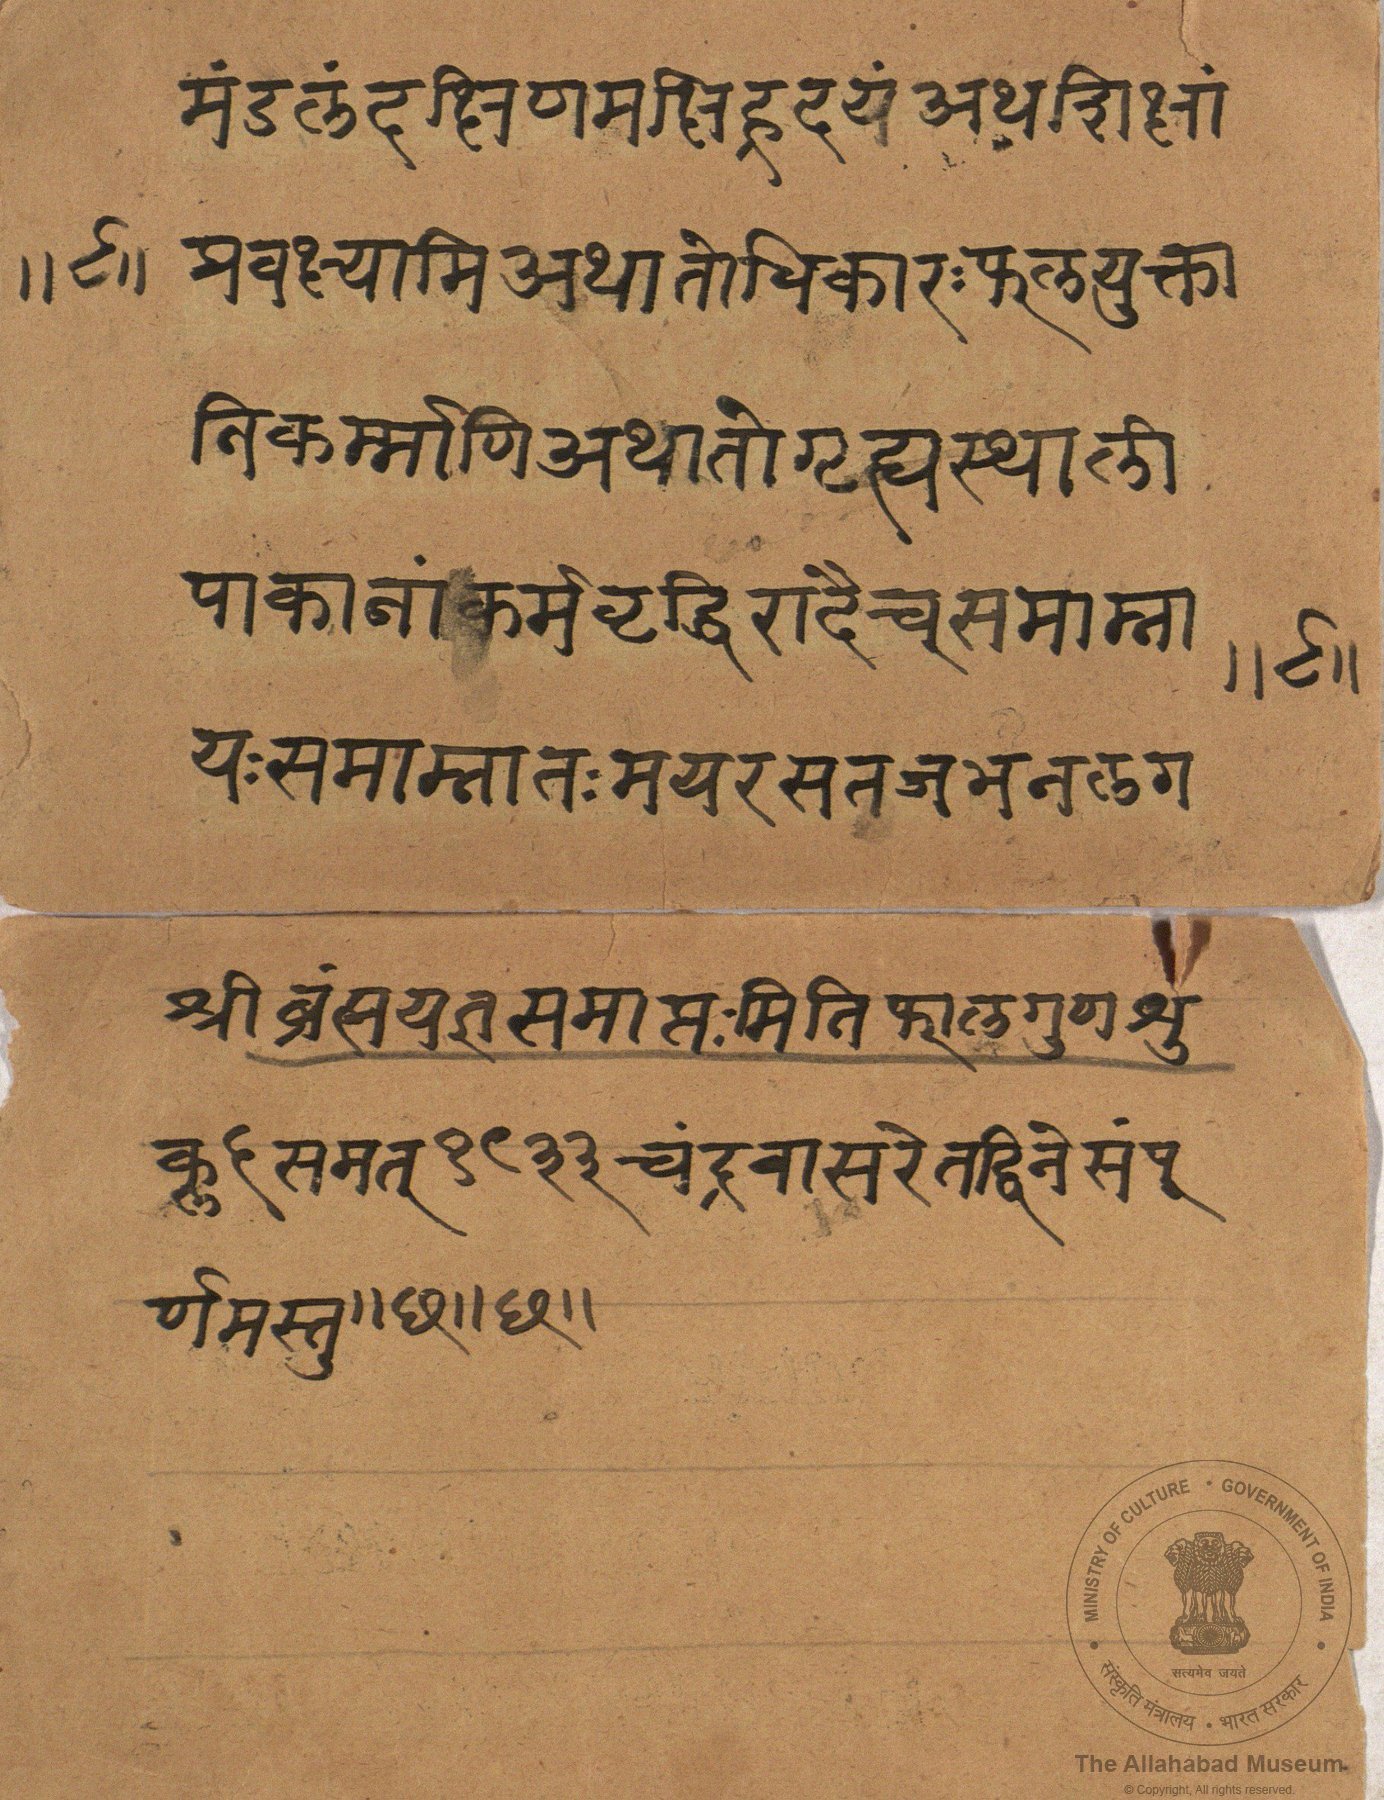 मंडलंदक्षिणमक्षिहृदयं अथशिक्षां
॥९॥ प्रवक्ष्यामि अथातोधिकारःफलयुक्ता
निकर्म्माणि अथातोगृह्यस्थाली
पाकानांकर्मवृद्धिरादैच्समाम्ना
॥९॥
यःसमाम्नातःमयरसतजभनलग
श्री ब्रंह्मयज्ञसमाप्तःमिति फाल्गुण शु
क्ल ६ समत् १९३३ चंद्रवासरेतद्दिने संपू
र्णमस्तु॥छ॥छ॥
MINISTRY OF CULTURE • GOVERNMENT OF INDIA
सत्यमेव जयते
संस्कृति मंत्रालय • भारत सरकार
The Allahabad Museum
© Copyright, All rights reserved.